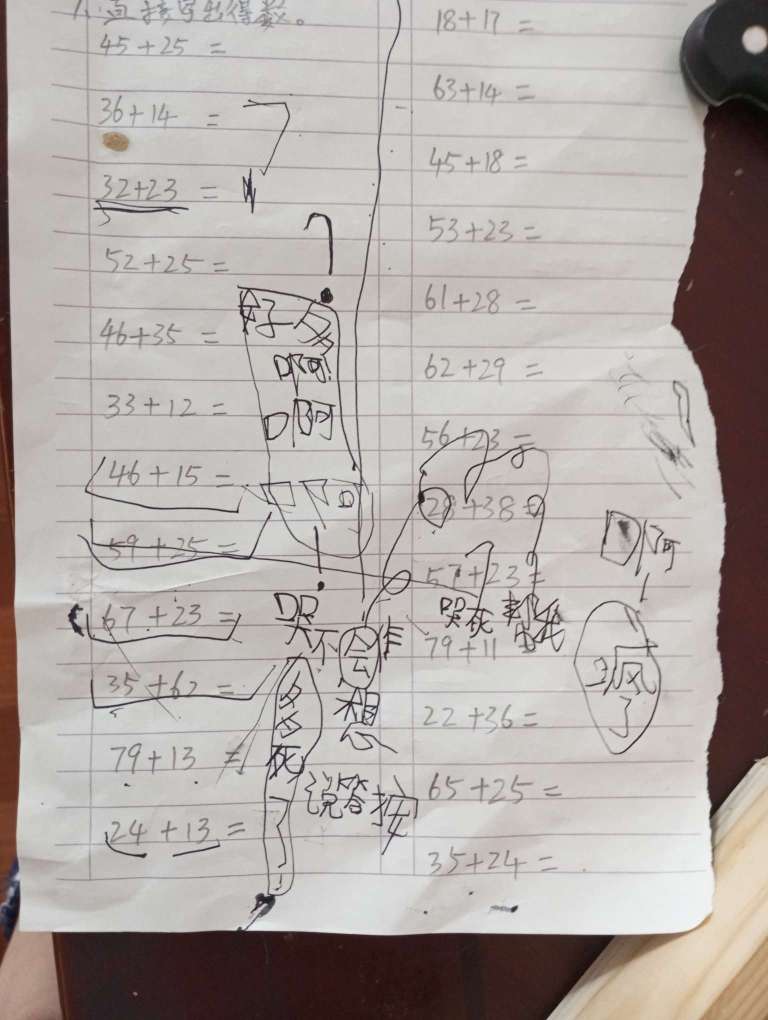 八.直接写出得数。
45+25=
36+14=
32+23=
52+25=
46+35=
33+12=
46+15=
59+25=
67+23=
35+62=
79+13=
24+13=
好多
啊!
啊
哭
不会
想
多多
死
说答
18+17=
63+14=
45+18=
53+23=
61+28=
62+29=
56+23=
28+38=
57+23=
79+11
22+36=
65+25=
35+24=
哭死
啊
疯了